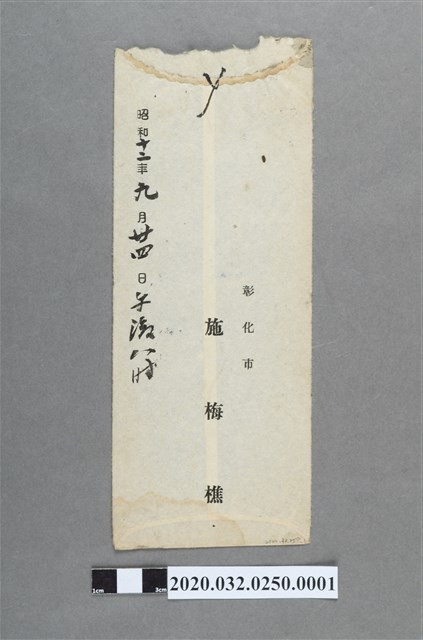 彰化市
施梅樵
昭和十二年九月廿四日午後八時
1cm
3cm
2020.032.0250.0001